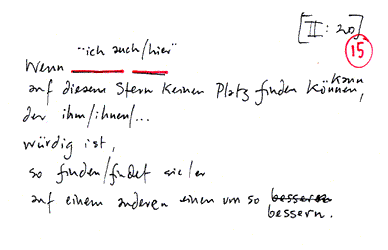 [II: 20]
15
"ich auch/hier"
Wenn
auf diesem Stern keinen Platz finden können, kann
der ihm/ihnen/...
würdig ist,
so finden/findet sie/er
auf einem anderen einen um so bessern
bessern.